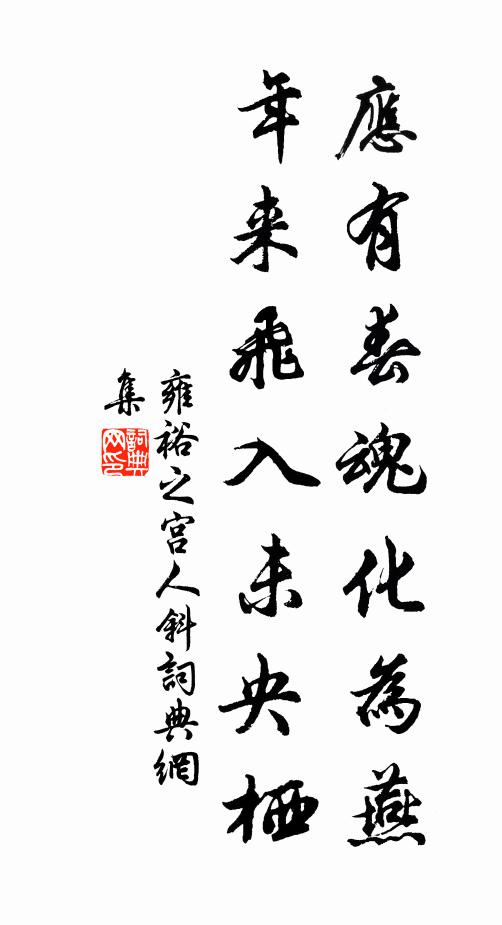 應有春魂化為燕
年来飛入未央栖
雍裕之宫人斜詞典網
集
詞典网印